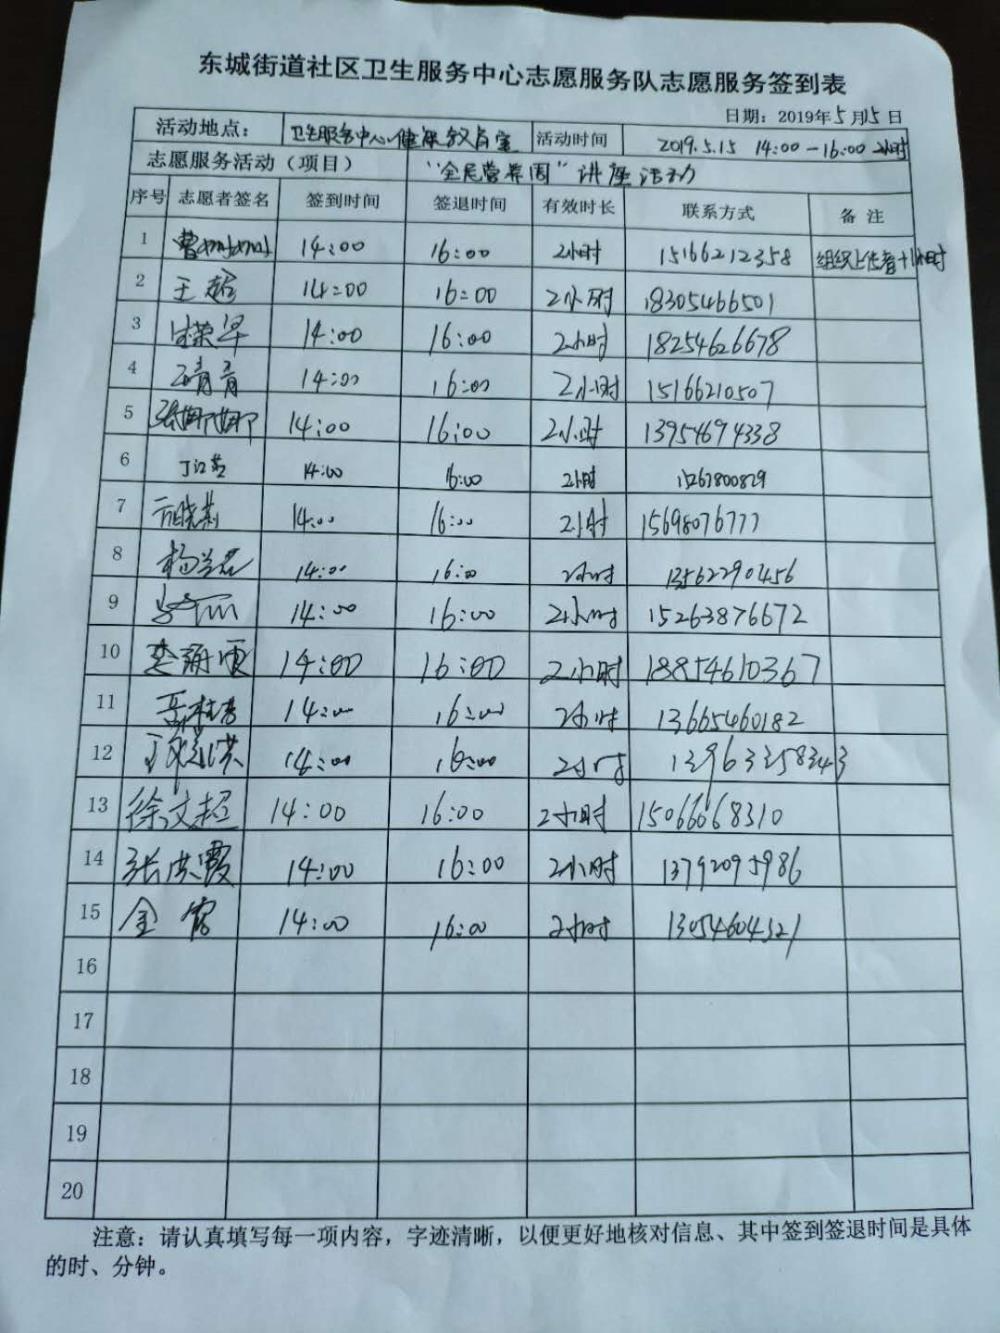 东城街道社区卫生服务中心志愿服务队志愿服务签到表
日期：2019年5月15日
活动地点： 卫生服务中心健康教育室 活动时间 2019.5.15 14:00-16:00 2小时
志愿服务活动（项目） “全民营养周”讲座活动
序号 志愿者签名 签到时间 签退时间 有效时长 联系方式 备注
1 曹姗姗 14:00 16:00 2小时 15166212358 组织上传者+1小时
2 王超 14:00 16:00 2小时 18305466501
3 荣早 14:00 16:00 2小时 18254626678
4 青青 14:00 16:00 2小时 15166210507
5 张娜娜 14:00 16:00 2小时 13954694338
6 丁江 14:00 16:00 2小时 15263800829
7 晓莉 14:00 16:00 2小时 15698076777
8 杨兰君 14:00 16:00 2小时 13562290456
9 14:00 16:00 2小时 15263876672
10 14:00 16:00 2小时 18854610367
11 14:00 16:00 2小时 13665460182
12 14:00 16:00 2小时
13 徐文超 14:00 16:00 2小时 15066668310
14 张洪霞 14:00 16:00 2小时 13792095986
15 金 14:00 16:00 2小时 13054604321
16
17
18
19
20
注意：请认真填写每一项内容，字迹清晰，以便更好地核对信息、其中签到签退时间是具体
的时、分钟。